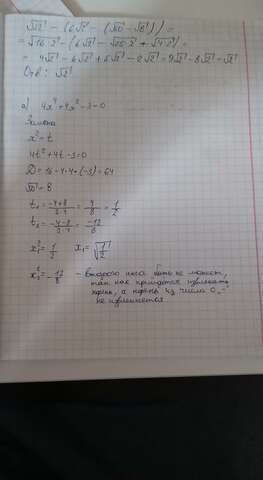 √32 - (6√2 - (√50 - √8)) =
= √16·2 - (6√2 - √25·2 + √4·2) =
= 4√2 - 6√2 + 5√2 - 2√2 = 9√2 - 8√2 = √2
Отв: √2
а) 4x⁴+4x²-3=0
Замена
x²=t
4t²+4t-3=0
D=16-4·4·(-3)=64
√D=8
t₁ = (-4+8)/(2·4) = 4/8 = 1/2
t₂ = (-4-8)/(2·4) = -12/8
x₁² = 1/2 x₁ = √(1/2)
x₂² = -12/8 - Второго икса быть не может,
так как придется извлекать
корень, а корень из числа 0,-
не извлекается